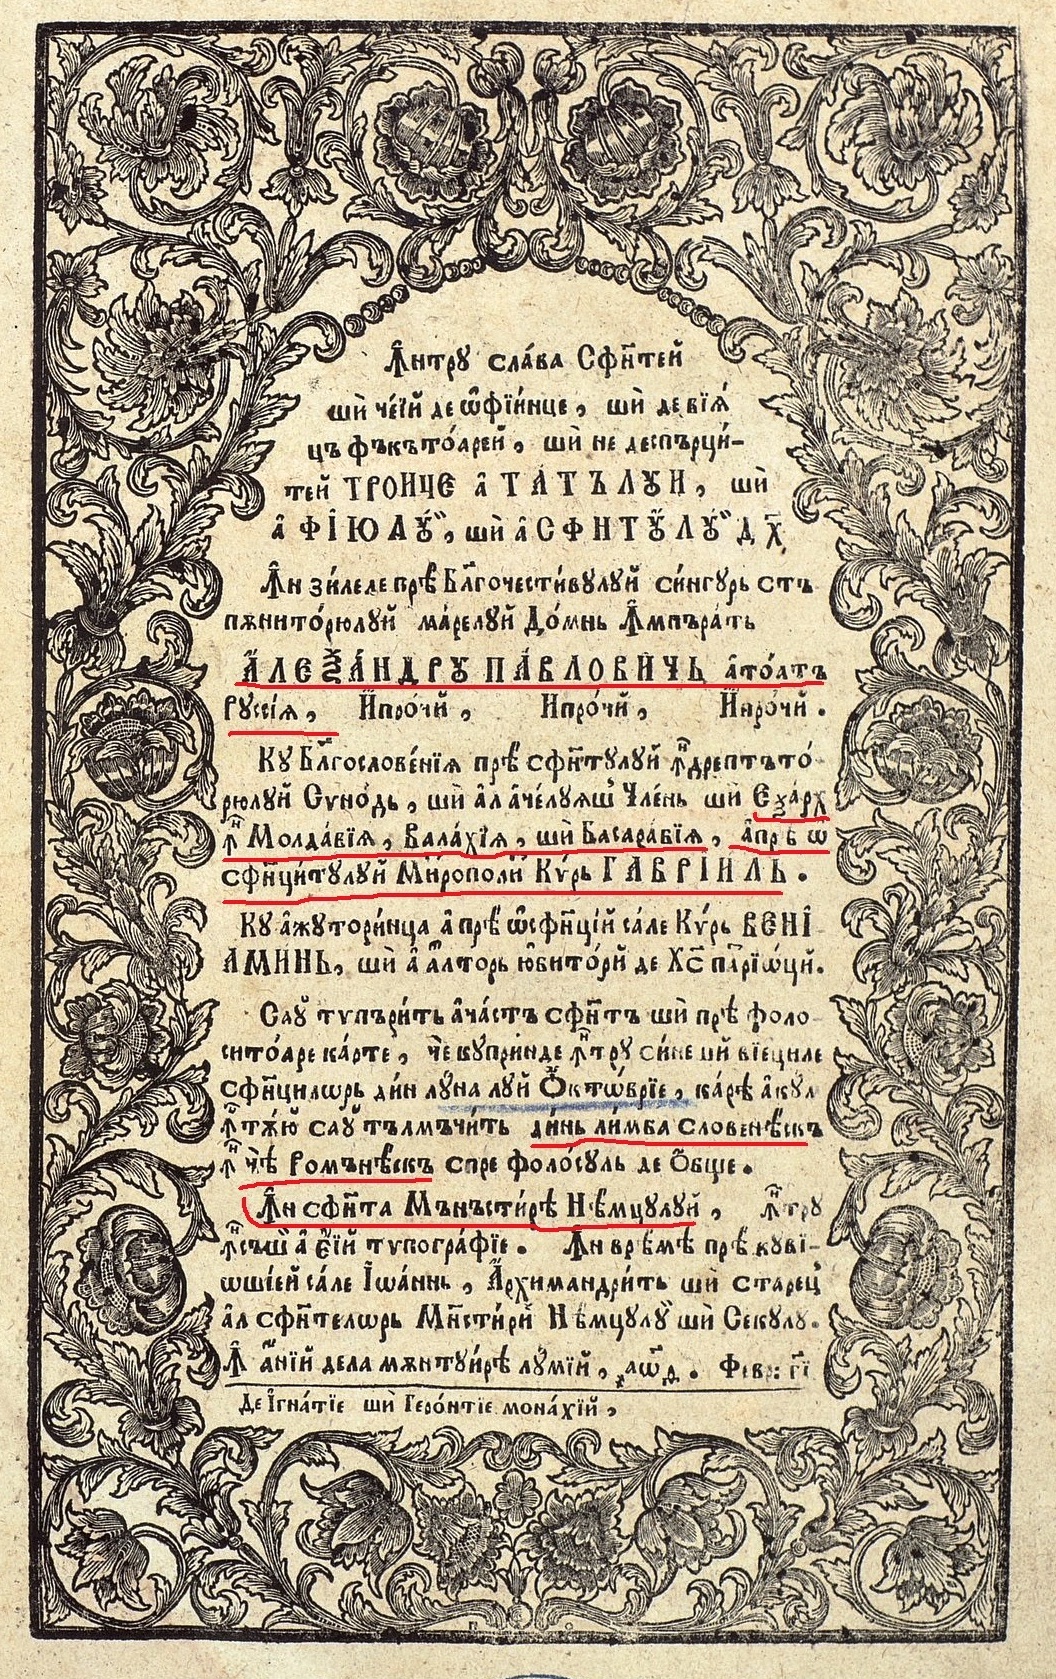 Ꙟнтрꙋ сла́ва Сфи҃нтей
шѝ че́їй де ѡ҆фїи́нце, шѝ де вїѧ́
цъ фъкъто́арей, шѝ не деспърци́-
тей ТРОИЦЕ а҆ ТАТЪЛꙋИ, шѝ
а҆ ФІЮЛꙋ́й, шѝ а҆ СФНТꙋ́Лꙋ́й Д Х҃
Ꙟн зи́леле прѣ Бл҃гочести́вꙋлꙋй си́нгꙋрь стъ
пѫнито́рюлꙋй ма́релꙋй До́мнь Ꙟмпъра́ть
А҆ЛЕѮА́НДРꙋ ПА́ВЛОВИЧЬ а҆то́атъ
Рꙋссі́ѧ, И҆про́чй, И҆про́чй, И҆про́чй.
Кꙋ Бл҃гослове́нїѧ прѣ сфн҃тꙋлꙋй ꙟдрептъто́-
рюлꙋй Сѵно́дь, шѝ а҆л а҆че́лꙋѧш Чле́нь шѝ Е҆ѯа́рх
ꙟ Молда́вїѧ, Вала́хїѧ, шѝ Басара́вїѧ, а҆ прѣ ѡ҆
сфн҃ци́тꙋлꙋй Ми́рополи Кѵ́рь ГАВРІ́ИЛЬ.
Кꙋ а҆жꙋтори́нца а҆ прѣ ѡ҆сфн҃ці́й са́ле Кѵ́рь ВЕНІ
АМИНЬ, шѝ а҆ а҆лторь юбито́рй де Хс҃ патрїѡ́цй.
Саꙋ типъри́ть а҆ча́стъ сфн҃тъ шѝ прѣ фоло-
сито́аре ка́рте, че кꙋпри́нде ꙟтрꙋ си́не шѝ вїе́циле
сфн҃цилѡрь ди́н лꙋ́на лꙋй О҆ктѡ́врїе, ка́рѣ а҆кꙋм
ꙟтѫ́ю саꙋ тълмъчи́ть ди́нь ли́мба слове нѣскъ
ꙟ че́ Ромънѣскъ спре фоло́сꙋль де О҆́бще.
Ꙟн сфн҃та Мънъсти́рѣ Нѣ́мцꙋлꙋй, ꙟтрꙋ
ꙟсъш а҆ є҆́їй типогра́фїе. Ꙟн врѣ́мѣ прѣ кꙋвї-
ѡшїе́й са́ле Іѡа́ннь, А҆рхимандри́ть шѝ старец
а҆л сфн҃телѡрь Мн҃сти́рй Нѣ́мцꙋлꙋй шѝ Секꙋлꙋ.
Ꙟ а҆нїй де ла мѫнтꙋи́рѣ лꙋ́мїй, ҂аѡ҃ѳ. Февр: гі҃
Де Ігна́тїе шѝ Геро́нтїе мона́хїй,